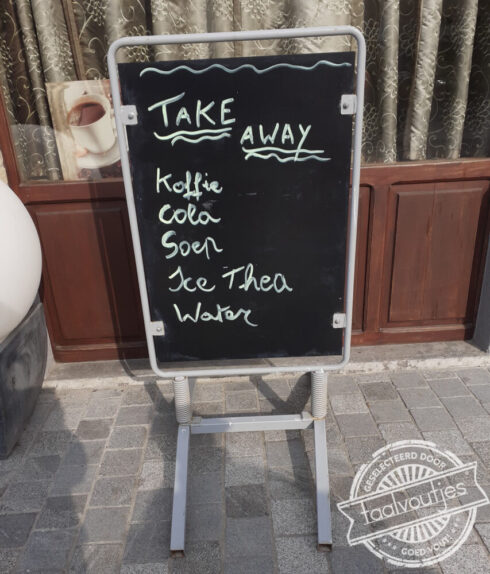 TAKE
AWAY
Koffie
Cola
Soep
Ice Thea
Water
GESELECTEERD DOOR
taalvoutjes
GOED FOUT!